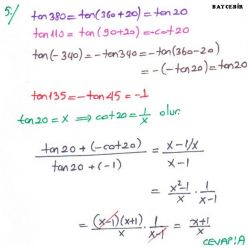 BAYCEBİR
5./ tan380 = tan(360+20) = tan20
tan110 = tan(90+20) = -cot20
tan(-340) = -tan340 = -tan(360-20)
= -(-tan20) = tan20
tan135 = -tan45 = -1
tan20 = x ⟹ cot20 = 1/x olur.
(tan20 + (-cot20))/(tan20 + (-1)) = (x - 1/x)/(x - 1)
= (x²-1)/x · 1/(x-1)
= ((x-1)(x+1))/x · 1/(x-1) = (x+1)/x
CEVAP: A